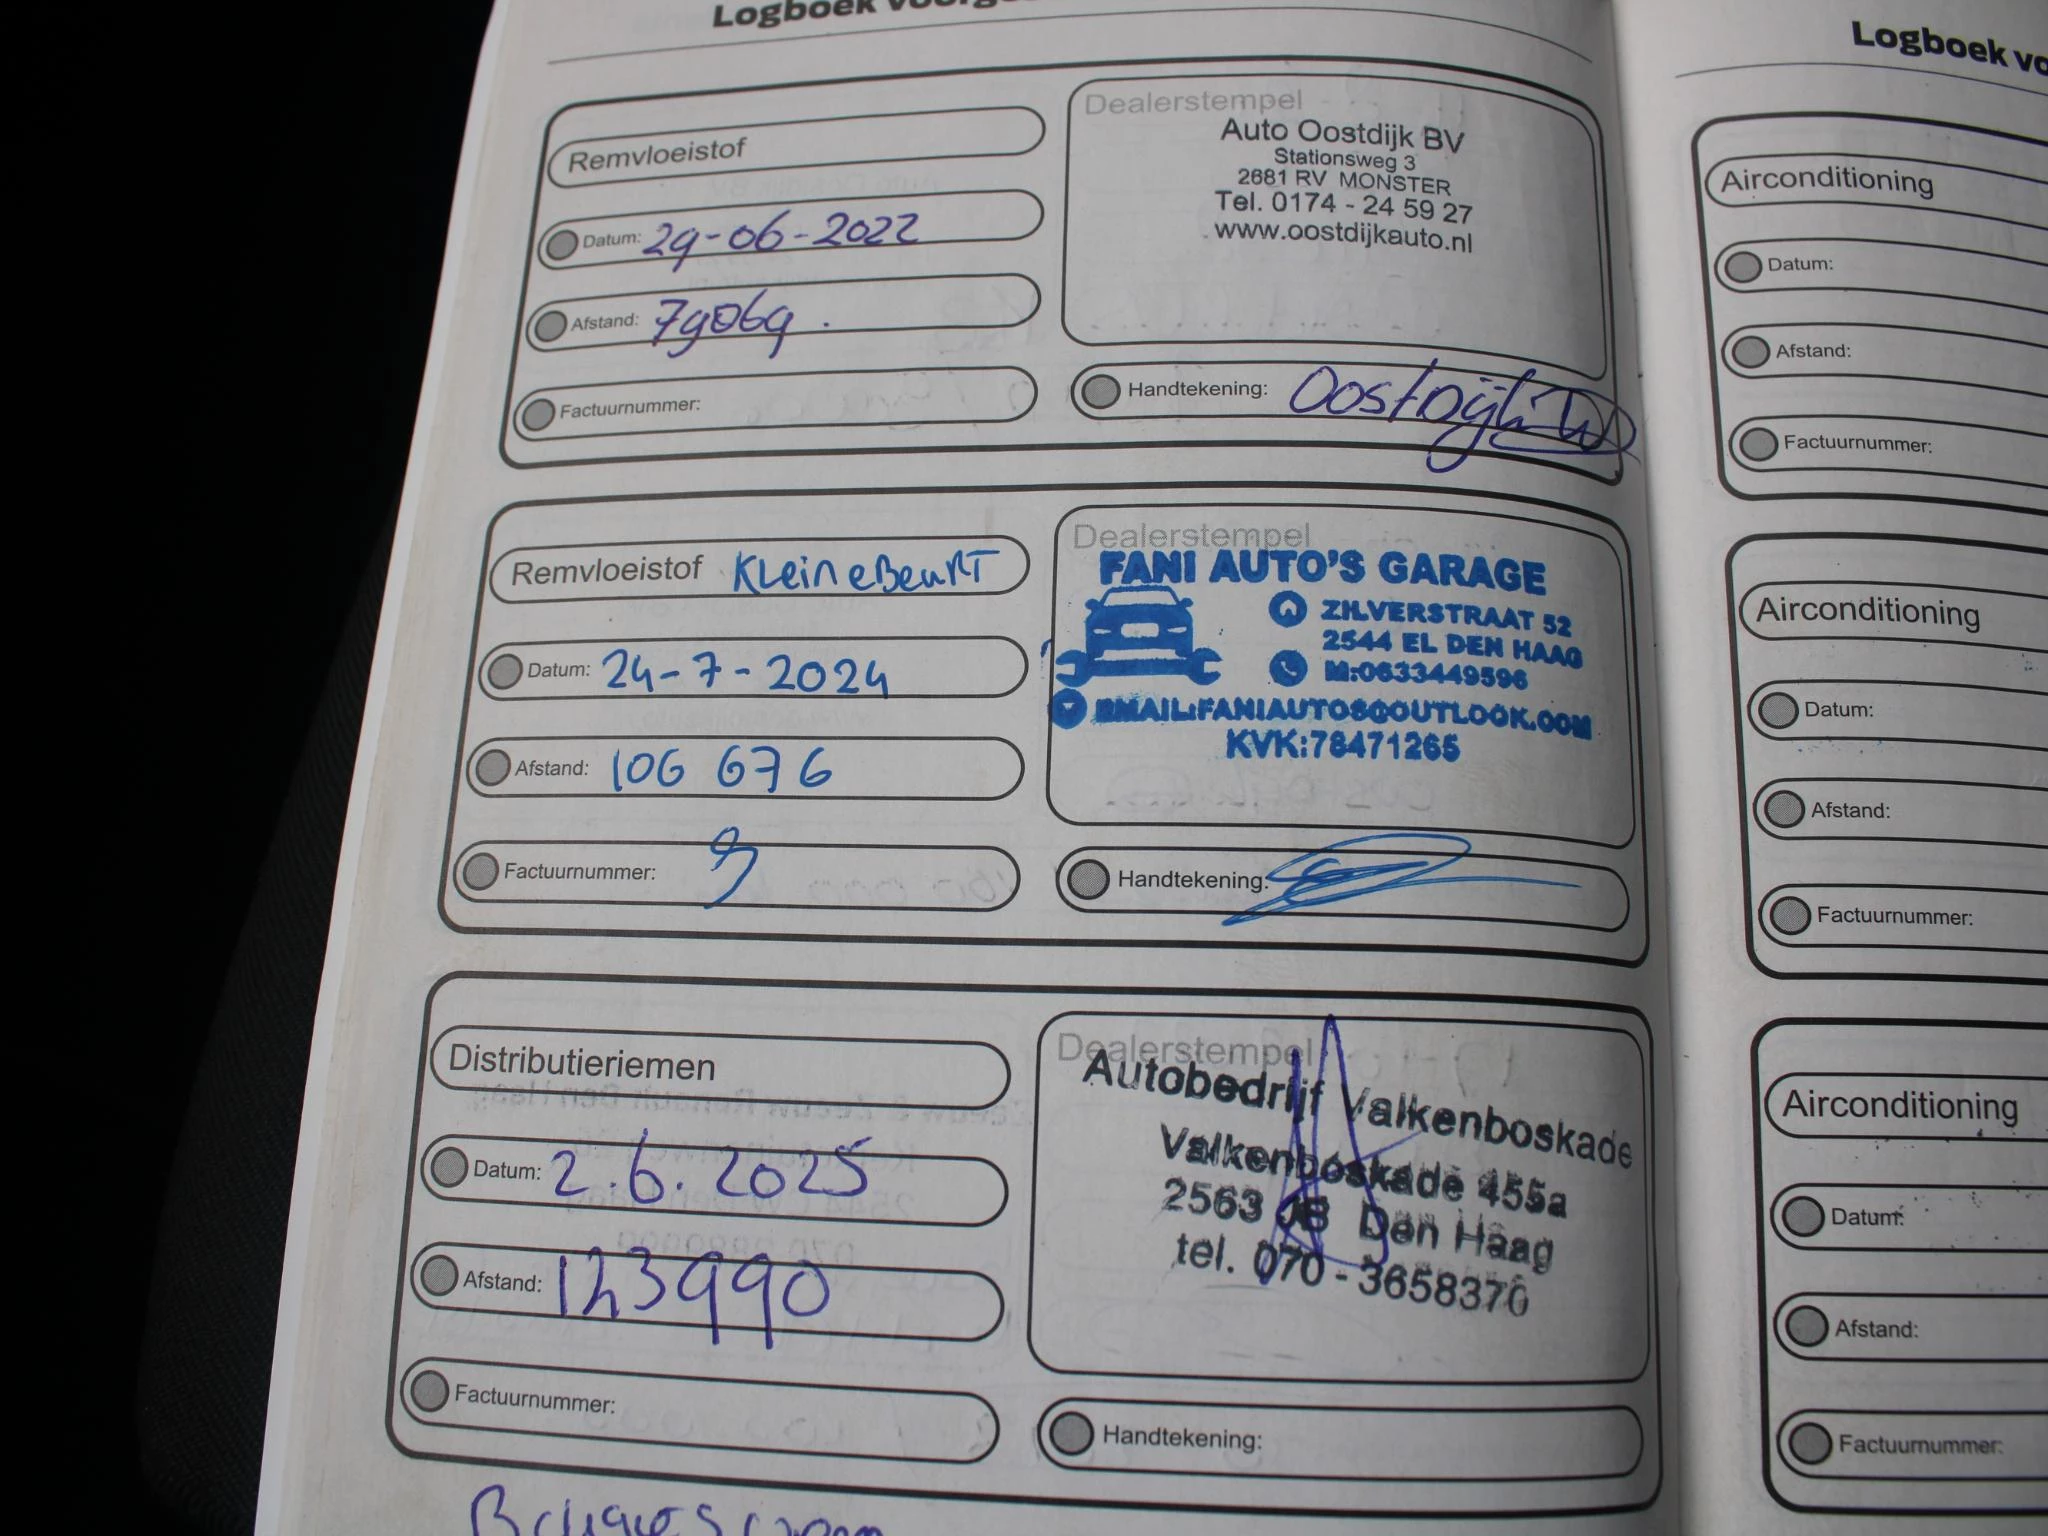 Logboek
Remvloeistof
Datum: 29-06-2022
Afstand: 79069.
Factuurnummer:
Dealerstempel
Auto Oostdijk BV
Stationsweg 3
2681 RV MONSTER
Tel. 0174 - 24 59 27
www.oostdijkauto.nl
Handtekening: Oostdijk
Remvloeistof KLeineBeuRT
Datum: 24-7-2024
Afstand: 106 676
Factuurnummer:
Dealerstempel
FANI AUTO'S GARAGE
ZILVERSTRAAT 52
2544 EL DEN HAAG
M:0633449596
EMAIL:FANIAUTOS@OUTLOOK.COM
KVK:78471265
Handtekening:
Distributieriemen
Datum: 2.6.2025
Afstand: 123990
Factuurnummer:
Dealerstempel
Autobedrijf Valkenboskade
Valkenboskade 455a
2563 JB Den Haag
tel. 070 - 3658370
Handtekening:
Logboek
Airconditioning
Datum:
Afstand:
Factuurnummer:
Airconditioning
Datum:
Afstand:
Factuurnummer:
Airconditioning
Datum:
Afstand:
Factuurnummer: